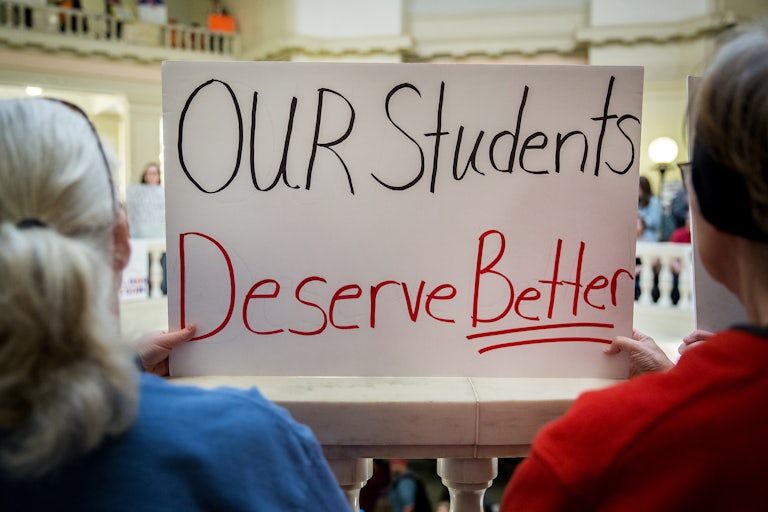 OUR Students
Deserve Better